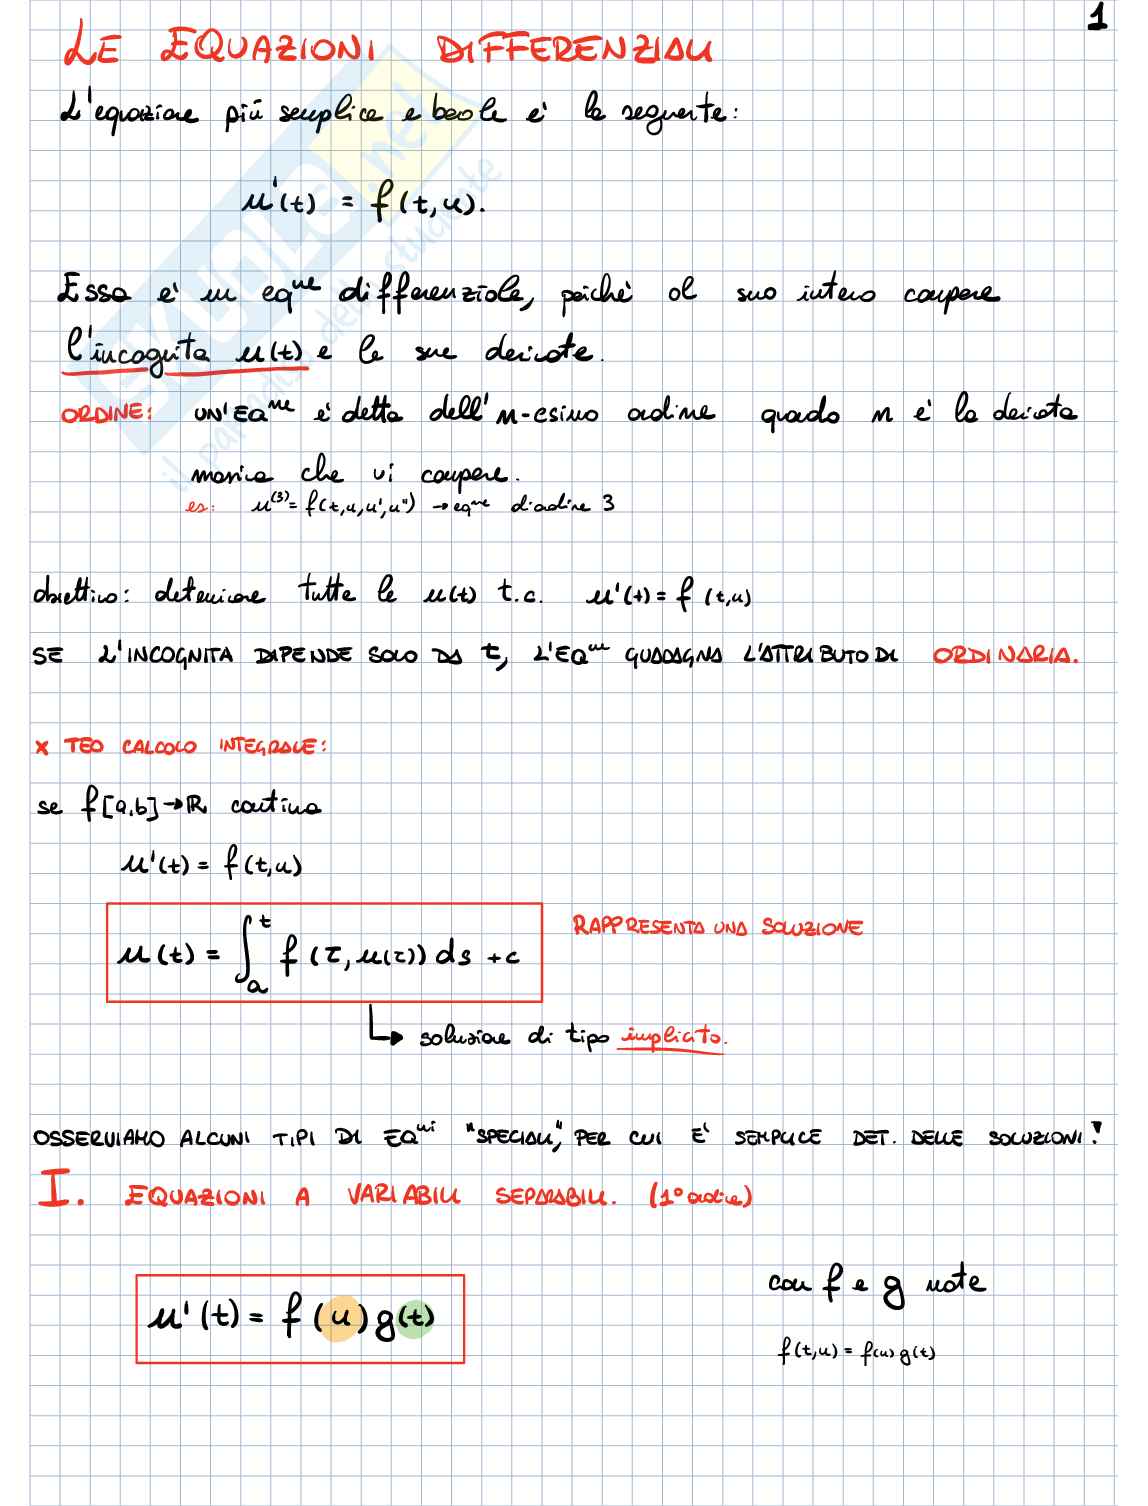 1
LE EQUAZIONI DIFFERENZIALI
L'equazione più semplice e banale e' la seguente:
u'(t) = f(t,u).
Essa e' un eqne differenziale, poiché al suo interno compare
l'incognita u(t) e le sue derivate.
ORDINE: UN'EQne è detta dell'n-esimo ordine quando n e' la derivata
massima che vi compare.
es: u(3) = f(t,u,u',u'') → eqne di ordine 3
obiettivo: determinare tutte le u(t) t.c. u'(t) = f(t,u)
SE L'INCOGNITA DIPENDE SOLO DA t, L'EQne GUADAGNA L'ATTRIBUTO DI ORDINARIA.
x TEO CALCOLO INTEGRALE:
se f[a,b]→ℝ continua
u'(t) = f(t,u)
u(t) = ∫ₐᵗ f(τ,u(τ)) ds + c RAPPRESENTA UNA SOLUZIONE
↳ soluzione di tipo implicito.
OSSERVIAMO ALCUNI TIPI DI EQni "SPECIALI", PER CUI E' SEMPLICE DET. DELLE SOLUZIONI!
I. EQUAZIONI A VARIABILI SEPARABILI. (1° ordine)
u'(t) = f(u)g(t) con f e g note
f(t,u) = f(u)g(t)
SKUOLA.net
il paradiso dello studente